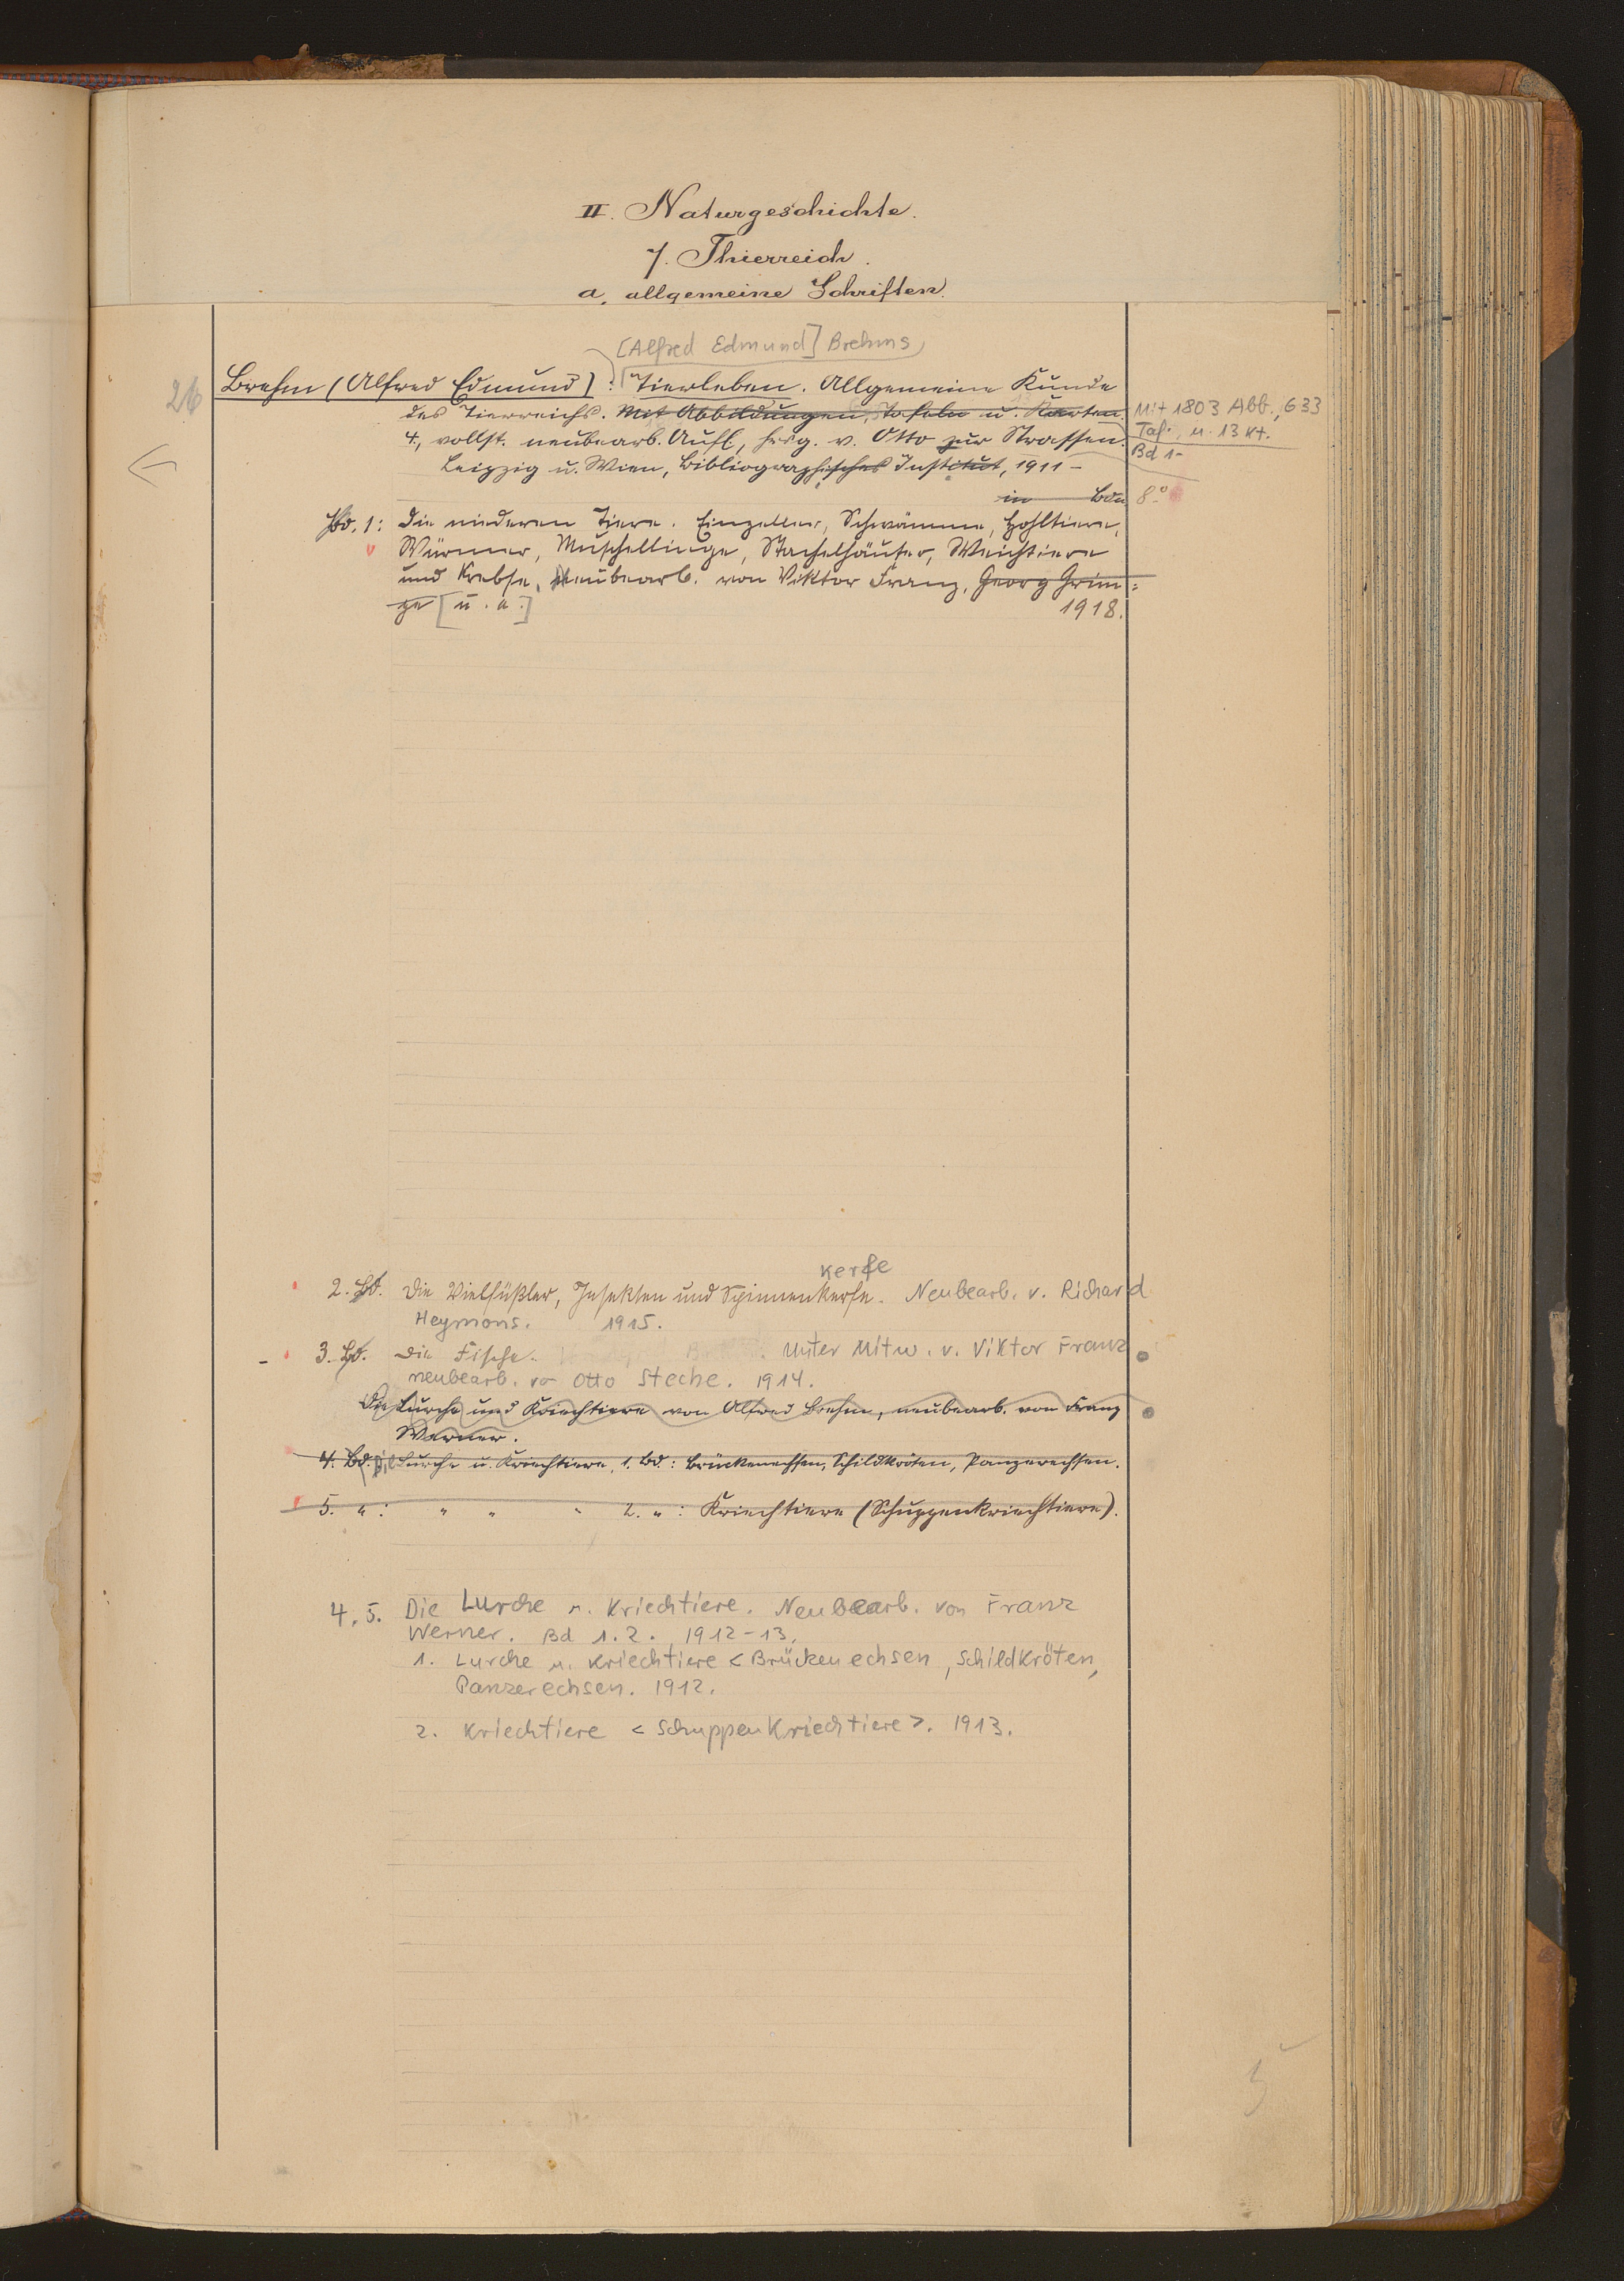 II. Naturgeschichte.
7. Thierreich.
a. allgemeine Schriften.
[Alfred Edmund] Brehms
26 Brehm (Alfred Edmund): Tierleben. Allgemeine Kunde
des Tierreichs. Mit Abbildungen, Tafeln u. Karten. Mit 1803 Abb., 633
4., vollst. neubearb. Aufl., hrsg. v. Otto zur Strassen. Taf. u. 13 Kt.
Leipzig u. Wien, Bibliographisches Institut, 1911 - Bd 1-
in Bdn 8°
Bd. 1: Die niederen Tiere. Einzeller, Schwämme, Hohltiere,
Würmer, Muschellinge, Stachelhäuter, Weichtiere
und Krebse. Neubearb. von Viktor Franz, Georg Grim=
pe [u. a.] 1918.
kerfe
2. Bd. Die Vielfüßler, Insekten und Spinnenkerfe. Neubearb. v. Richard
Heymons. 1915.
3. Bd. Die Fische. Unter Mitw. v. Viktor Franz
neubearb. von Otto Steche. 1914.
Die Lurche und Kriechtiere von Alfred Brehm, neubearb. von Franz
Werner.
4. Bd. Die Lurche u. Kriechtiere, 1. Bd.: Brückenechsen, Schildkröten, Panzerechsen.
5. " : " " " 2. " : Kriechtiere (Schuppenkriechtiere).
4. 5. Die Lurche u. Kriechtiere. Neubearb. von Franz
Werner. Bd 1. 2. 1912-13.
1. Lurche u. Kriechtiere < Brückenechsen, Schildkröten,
Panzerechsen. 1912.
2. Kriechtiere < Schuppenkriechtiere >. 1913.